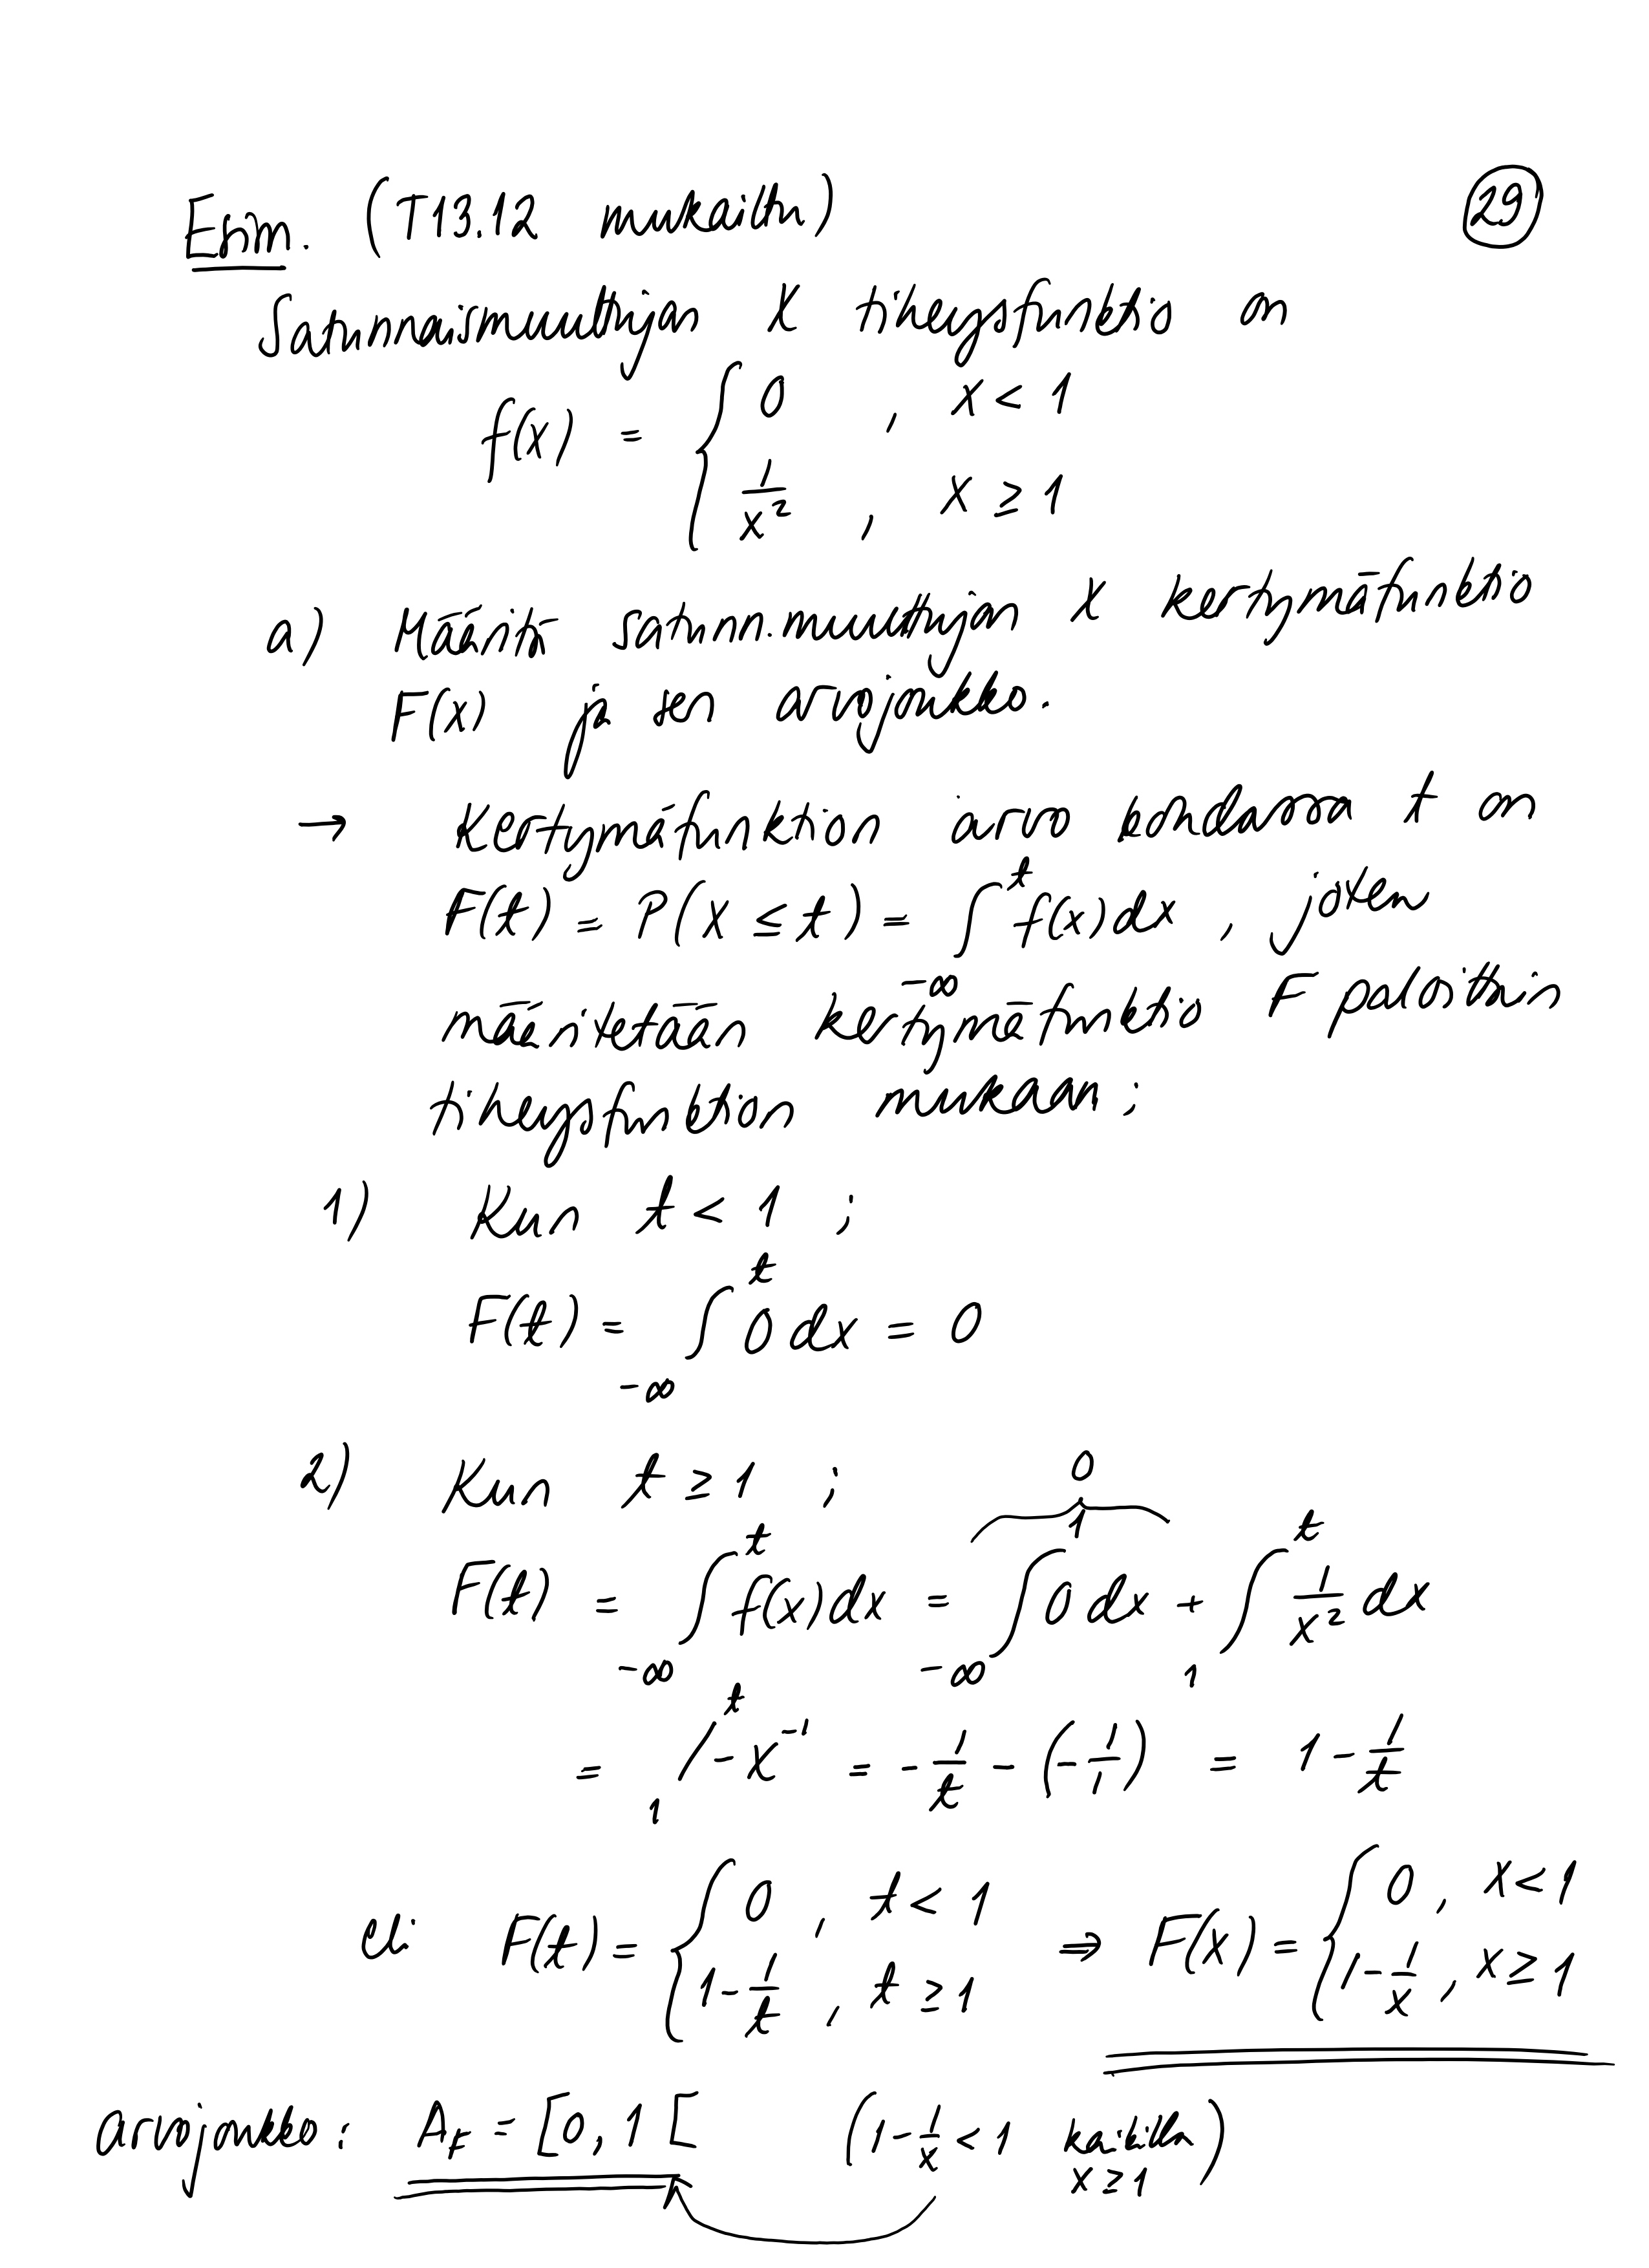 Esim. (T13.12 mukailtu) 29
Satunnaismuuttujan X tiheysfunktio on
f(x) = { 0 , x < 1
1/x² , x ≥ 1
a) Määritä satunn.muuttujan X kertymäfunktio
F(x) ja sen arvojoukko.
→ Kertymäfunktion arvo kohdassa t on
F(t) = P(X ≤ t) = ∫_{-∞}^{t} f(x)dx , joten
määritetään kertymäfunktio F paloittain
tiheysfunktion mukaan:
1) Kun t < 1 ;
F(t) = ∫_{-∞}^{t} 0 dx = 0
2) Kun t ≥ 1 ;
F(t) = ∫_{-∞}^{t} f(x)dx = ∫_{-∞}^{1} 0 dx + ∫_{1}^{t} 1/x² dx
0
= /_{1}^{t} -x⁻¹ = -1/t - (-1/1) = 1 - 1/t
eli F(t) = { 0 , t < 1 ⇒ F(x) = { 0 , x < 1
1 - 1/t , t ≥ 1 1 - 1/x , x ≥ 1
arvojoukko: A_F = [0, 1[ (1 - 1/x < 1 kaikilla
x ≥ 1)